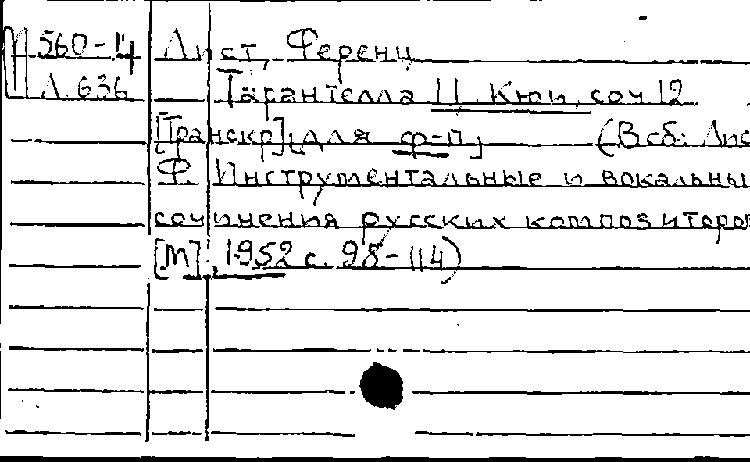 П 560-14 Лист, Ференц
Л 636 Тарантелла Ц. Кюи, соч 12
[Транскр] [для ф-п] (В сб: Лис
Ф. Инструментальные и вокальны
сочинения русских композиторов
[М], 1952 с. 98-114)